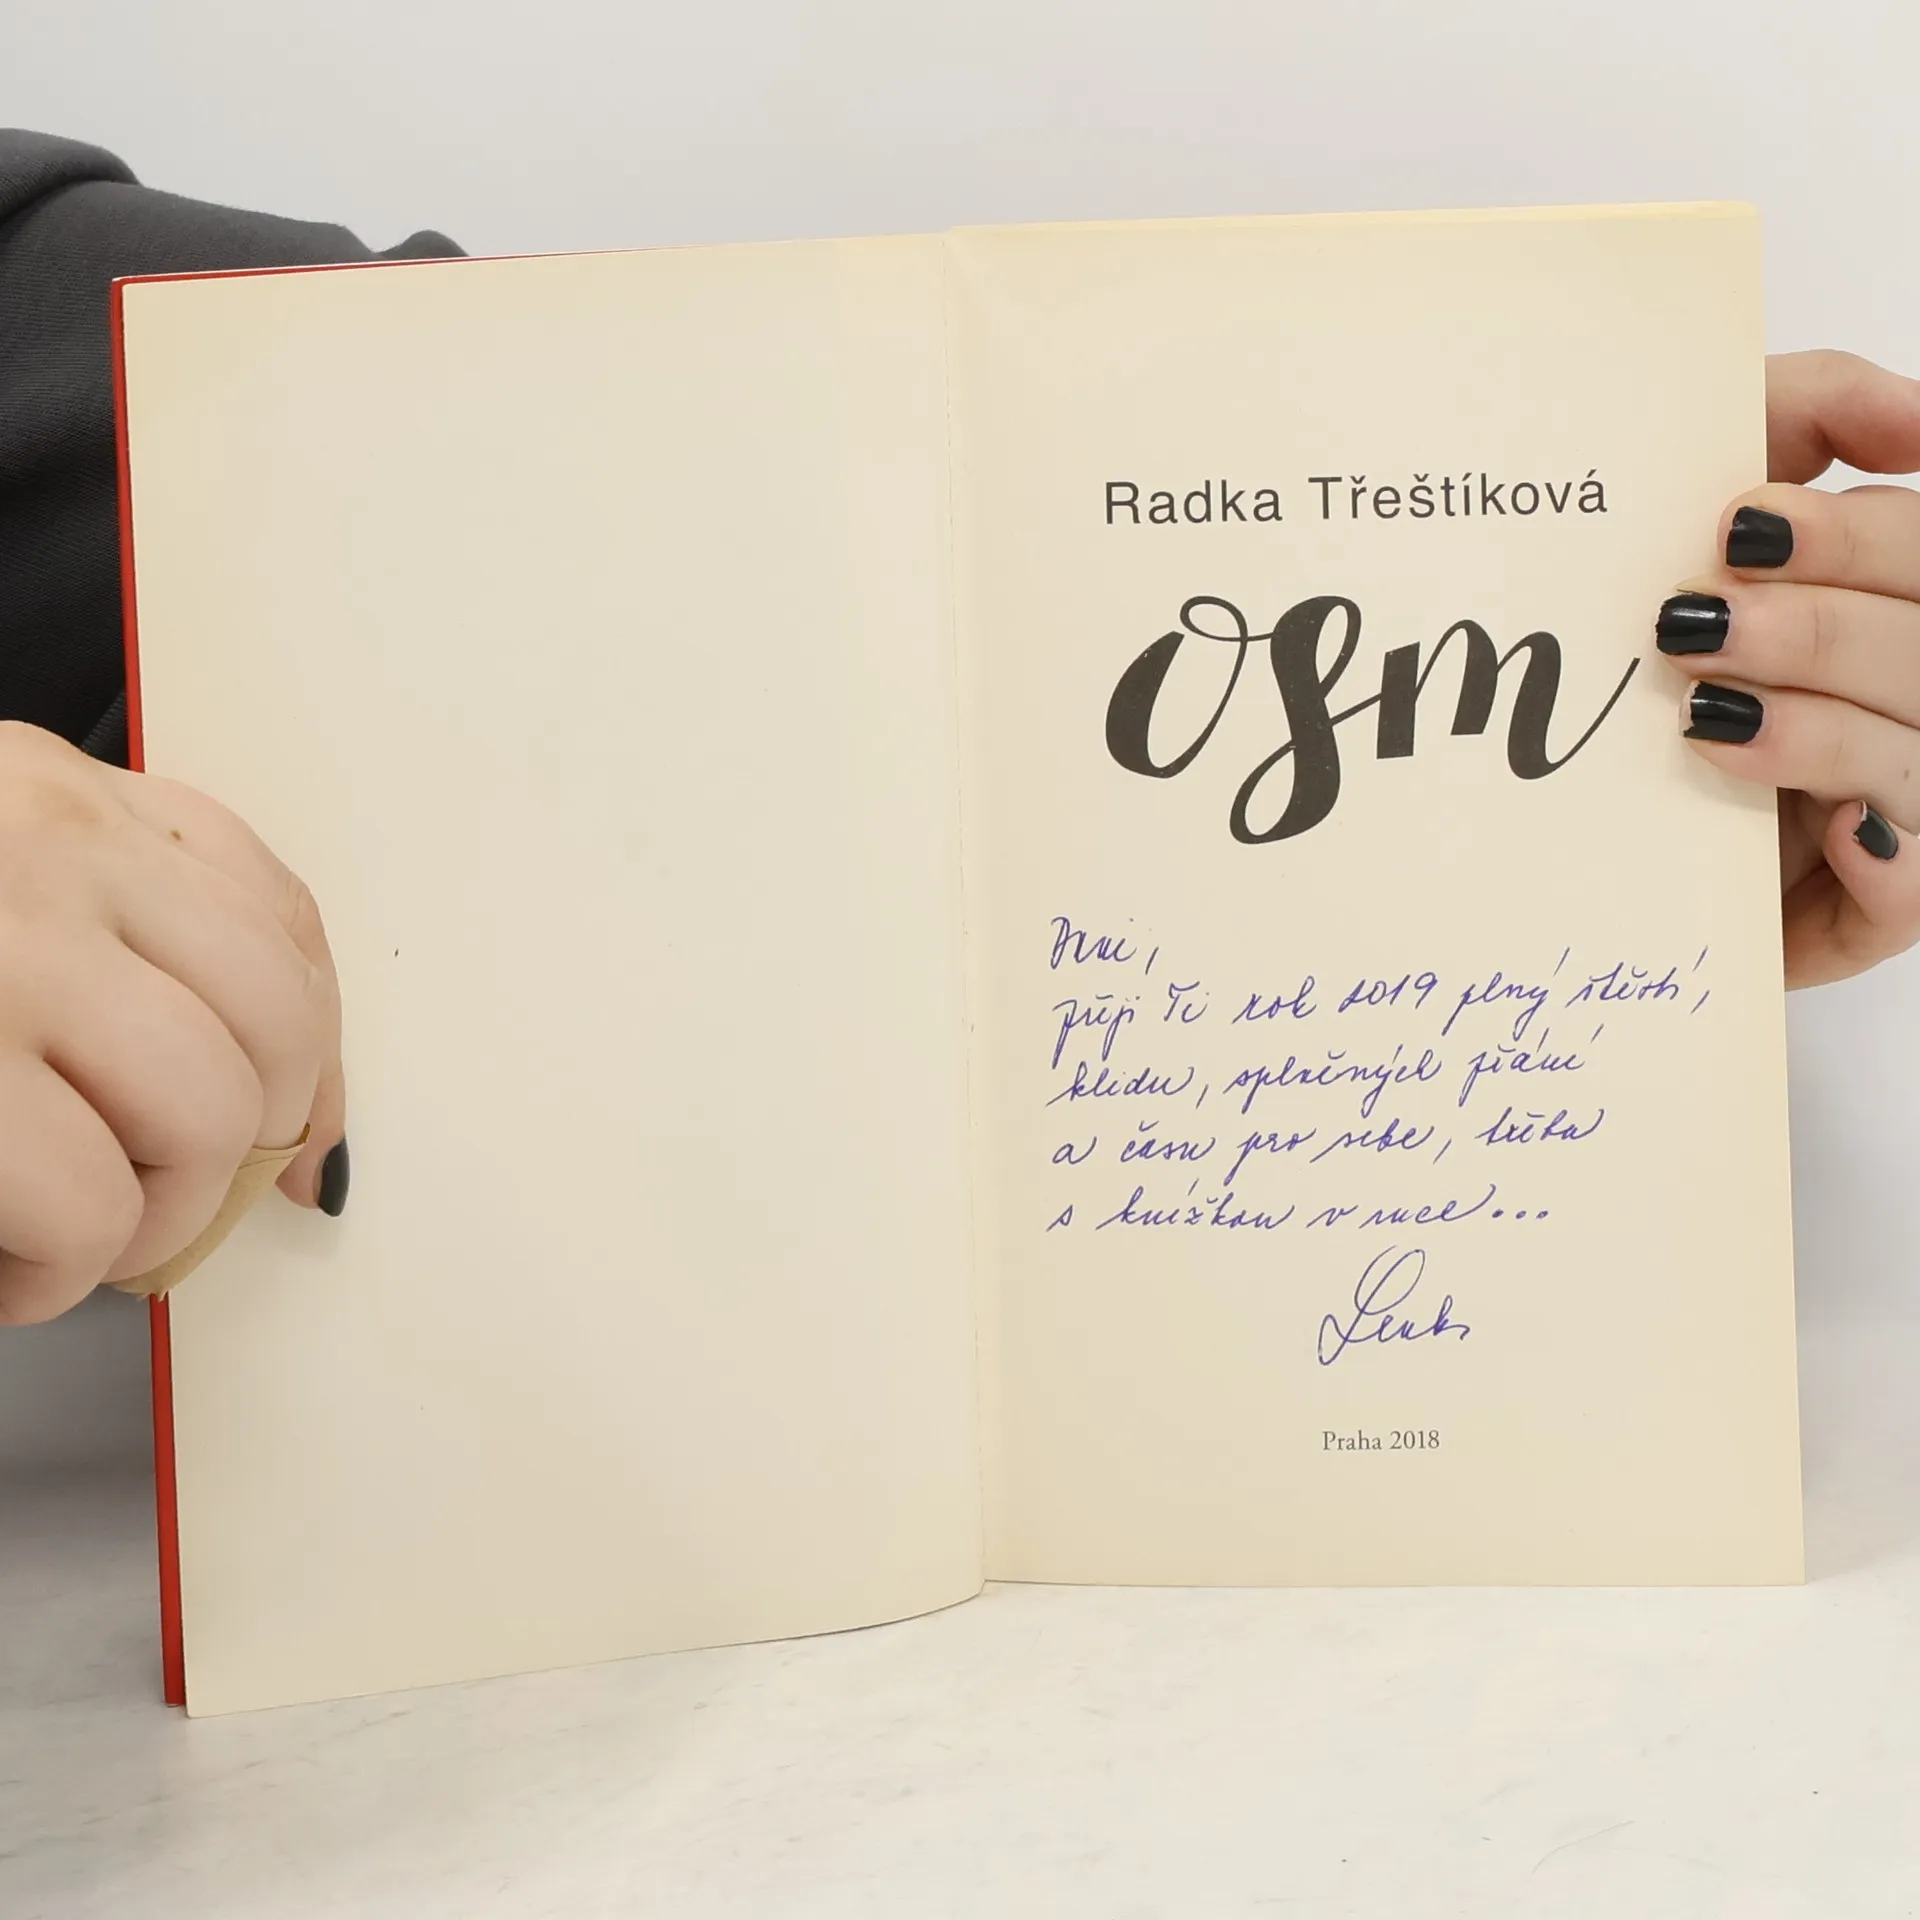 Radka Třeštíková
osm
přeji Ti rok 2019 plný štěstí,
klidu, splněných přání
a času pro sebe, třeba
s knížkou v ruce...
Lenka
Praha 2018